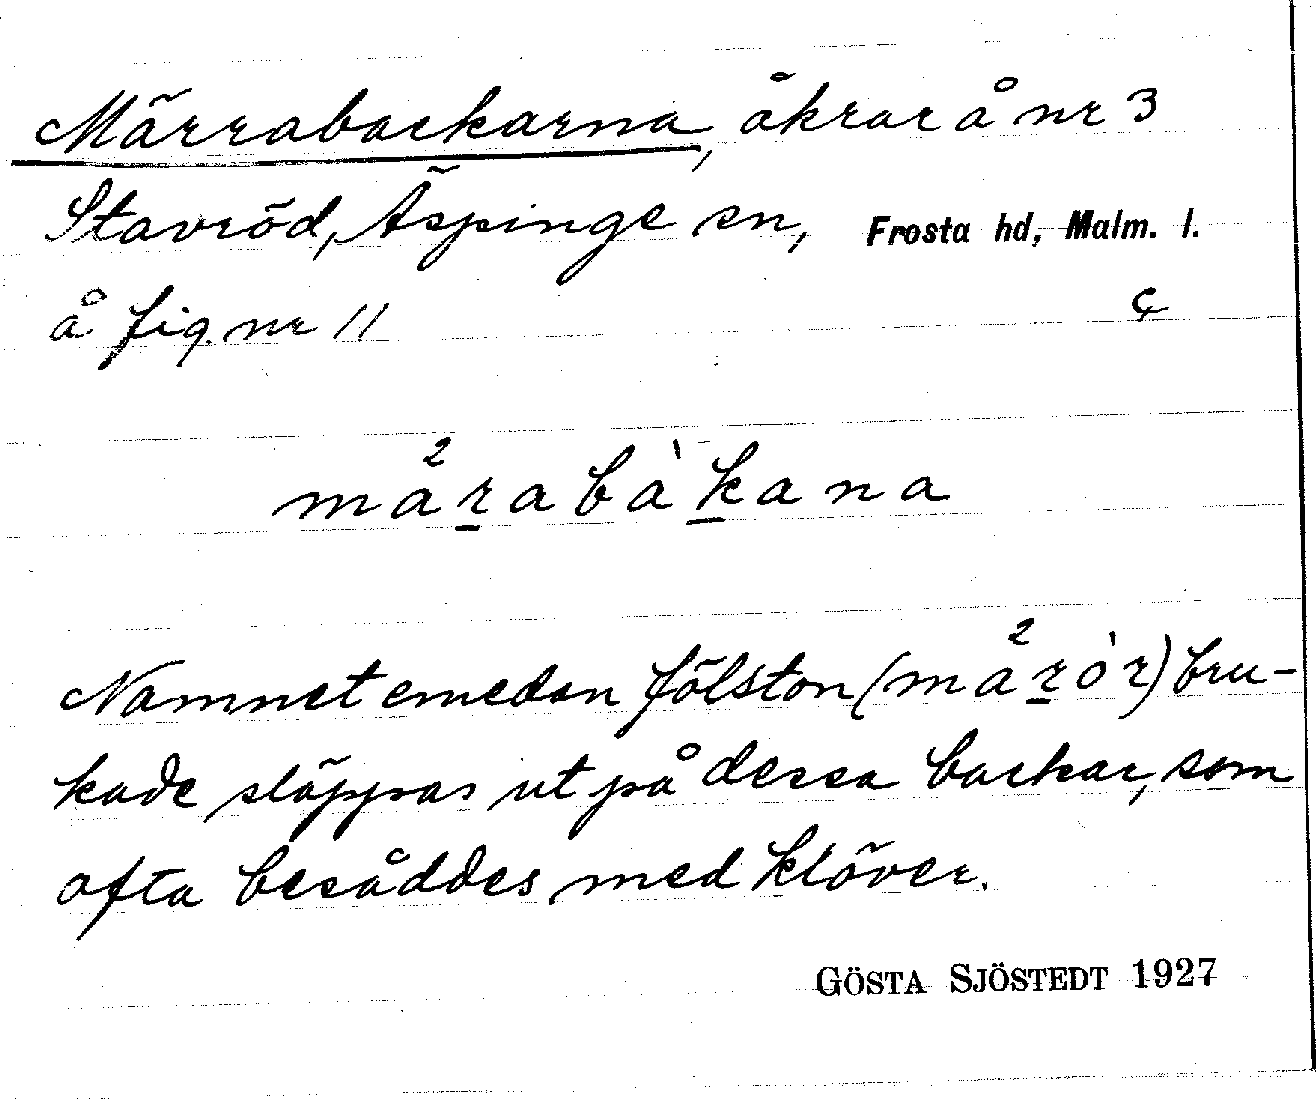 Märrabackarna, åkrar å nr 3
Stavröd, Äspinge sn, Frosta hd, Malm. l.
å fig. nr 11
må²r̲abàk̲ana
Namnet emedan fölston (må²r̲òr) bru-
kade släppas ut på dessa backar, som
ofta besåddes med klöver.
GÖSTA SJÖSTEDT 1927